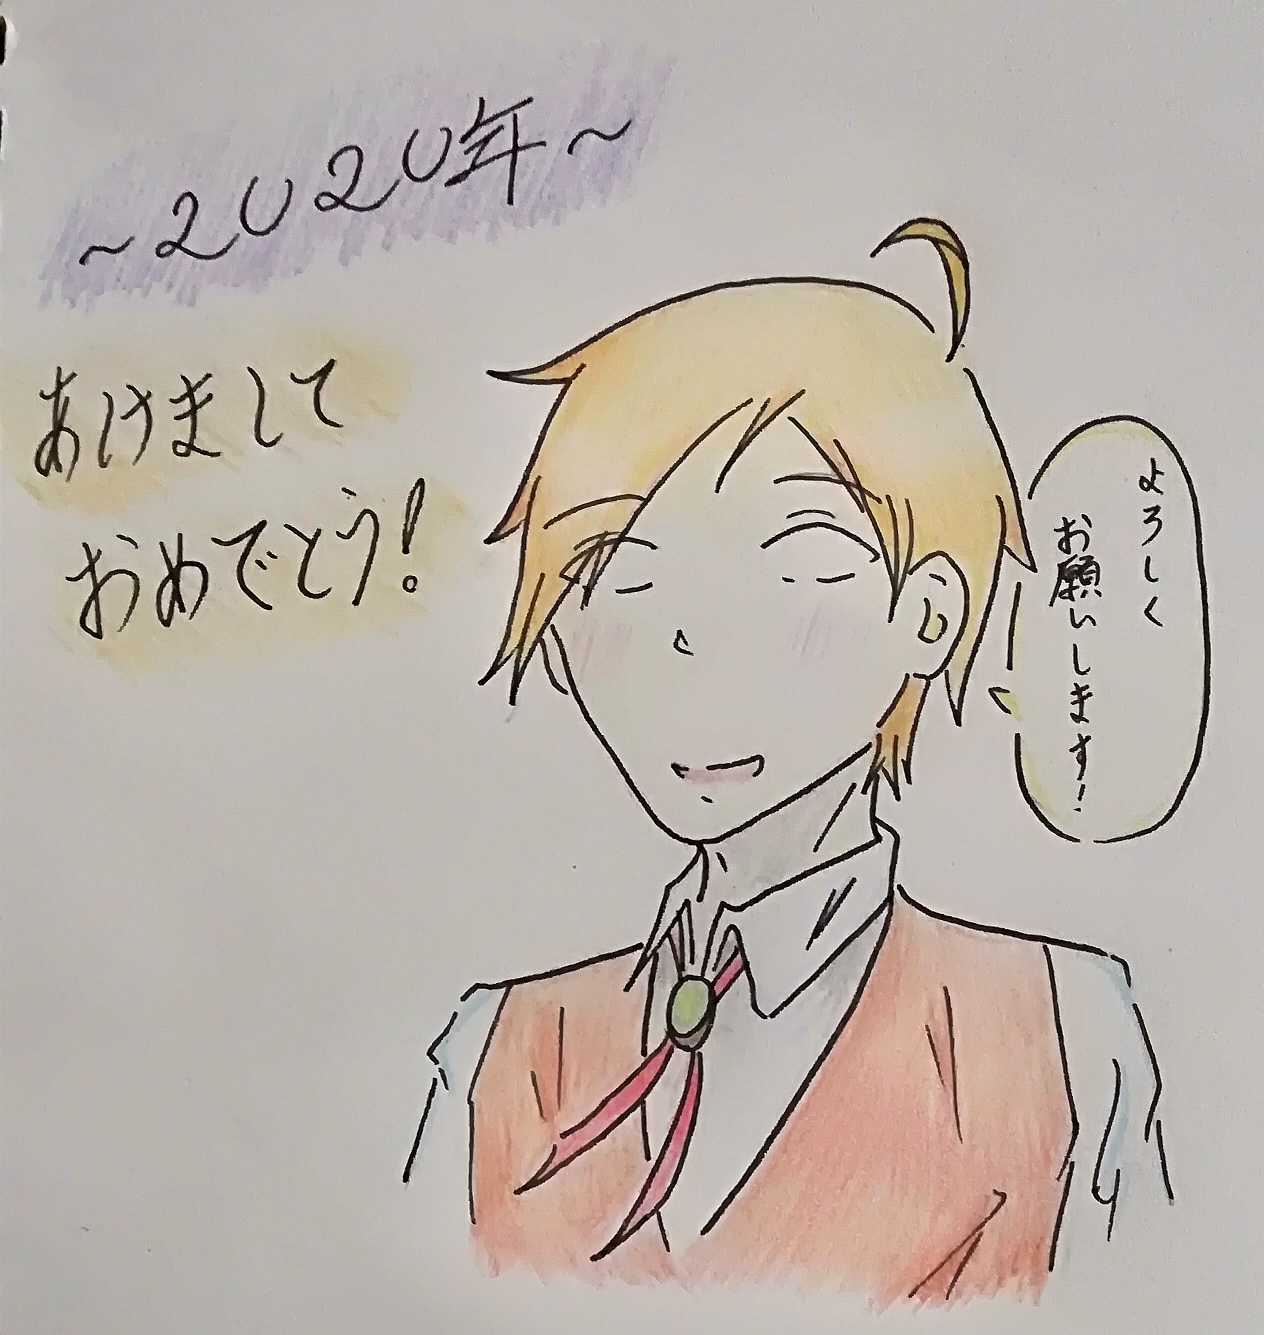 ～2020年～
あけまして
おめでとう!
よろしく
お願いします!